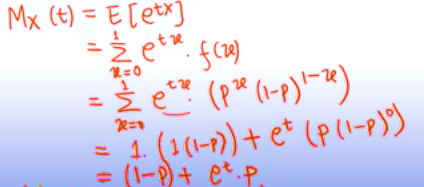 Mx (t) = E [etx]
= 1 Σ x=0 e^tx . f(x)
= 1 Σ x=0 e^tx . (p^x (1-p)^1-x)
= 1. (1(1-p)) + e^t (p(1-p)^0)
= (1-p) + e^t . p